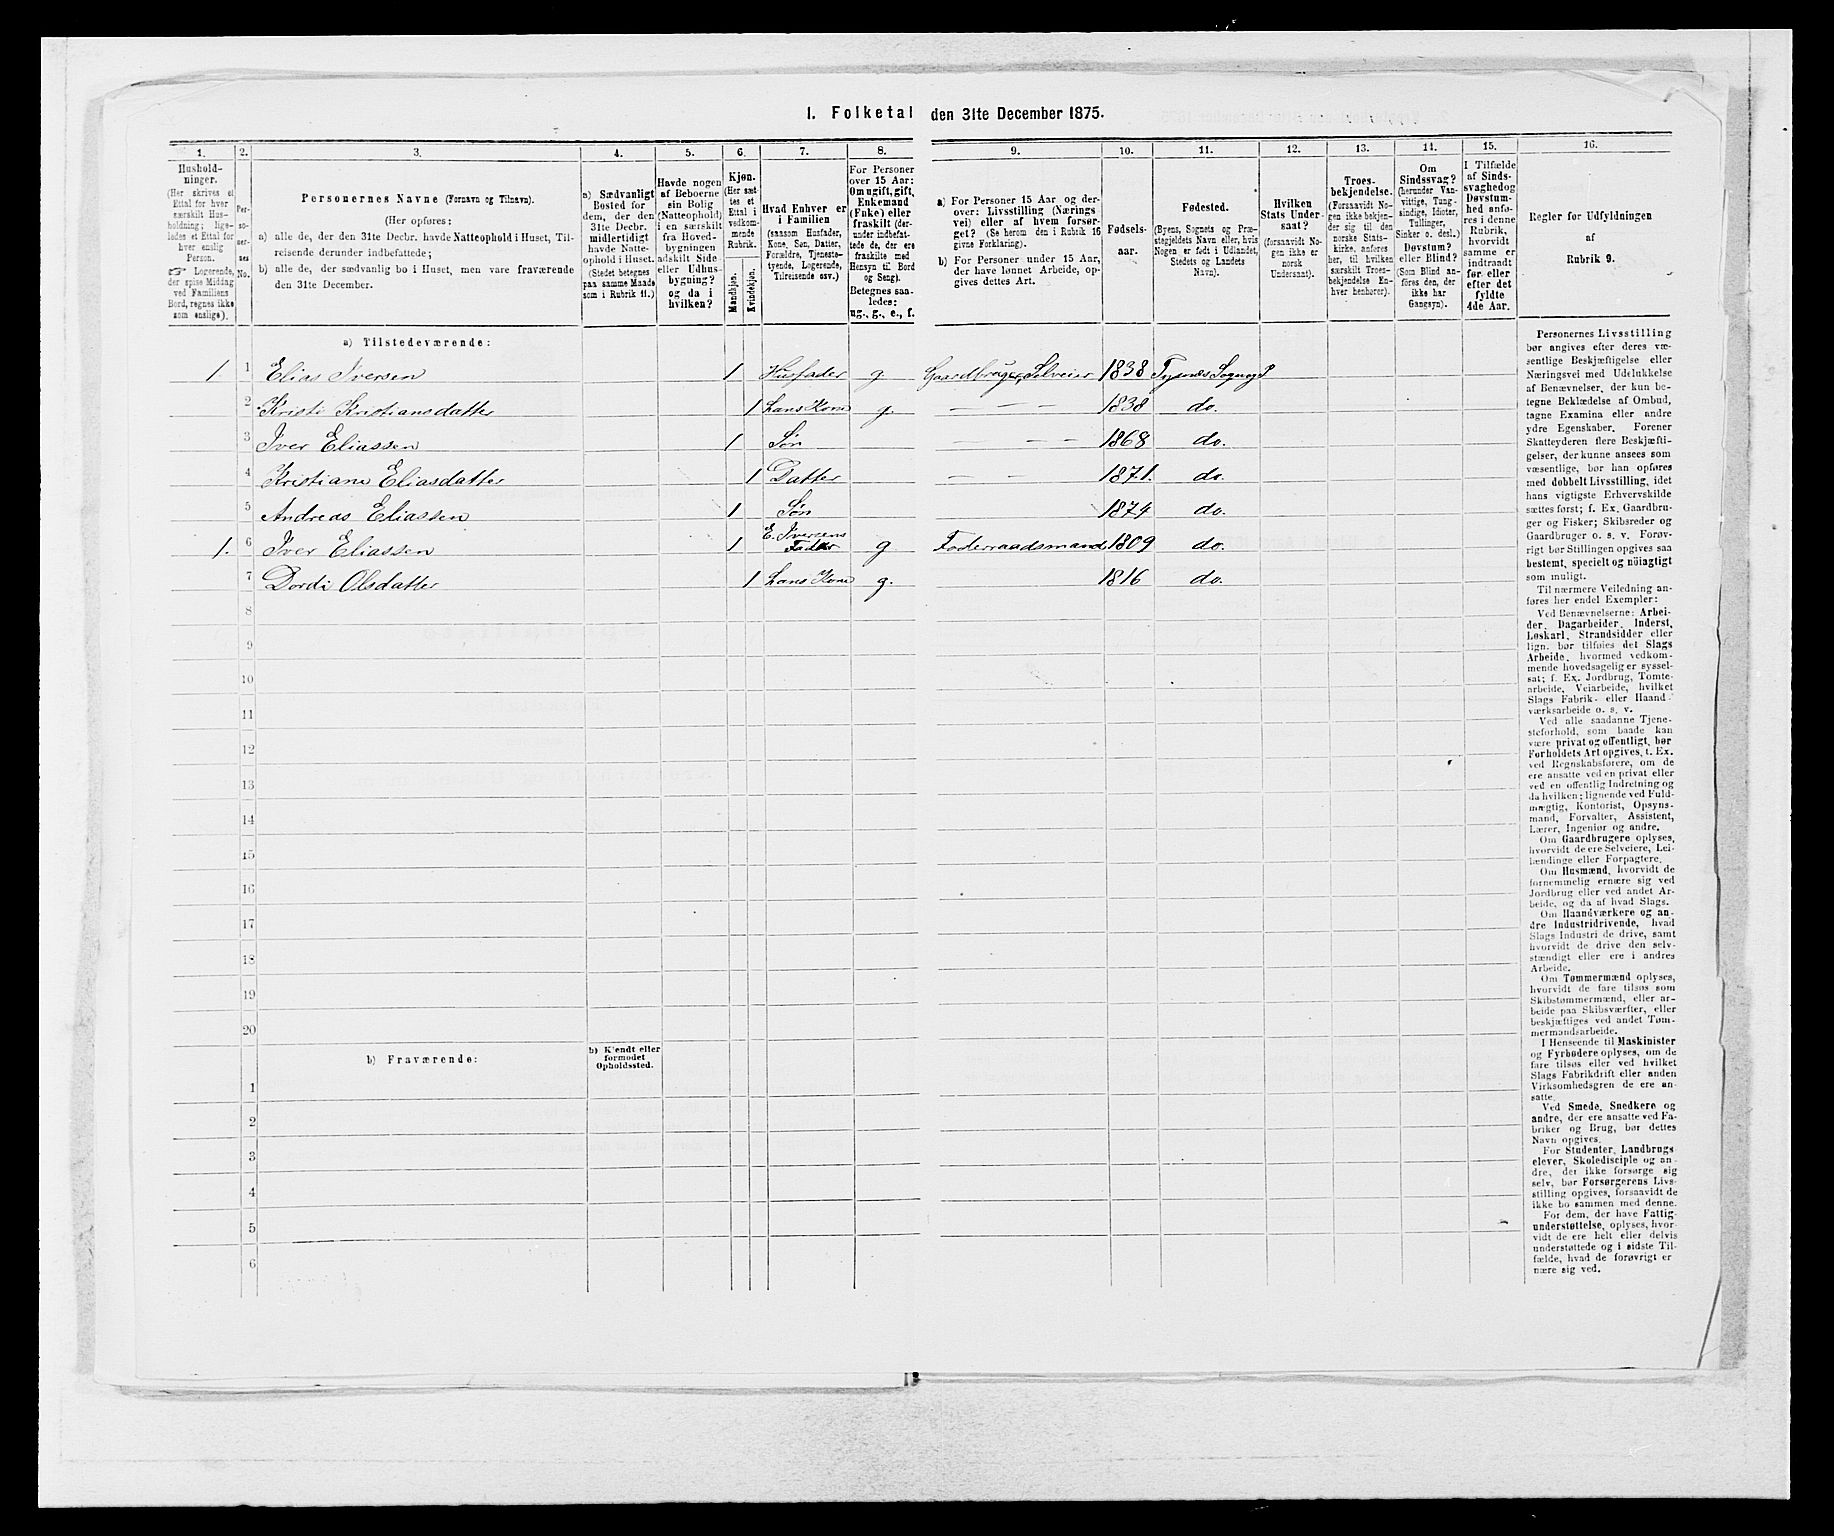 I. Folketal den 31te December 1875.
1. 2. 3. 4. 5. 6. 7. 8. 9. 10. 11. 12. 13. 14. 15. 16.
Hushold-
ninger.
(Her skrives et
Ettal for hver
særskilt Hus-
holdning; lige-
ledes et Ettal for
hver enslig
Person.
☞ Logerende,
der spise Middag
ved Familiens
Bord, regnes ikke
som enslige).
Per-
so-
ner-
nes
No.
Personernes Navne (Fornavn og Tilnavn).
(Her opføres:
a) alle de, der den 31te Decbr. havde Natteophold i Huset, Til-
reisende derunder indbefattede;
b) alle de, der sædvanlig bo i Huset, men vare fraværende
den 31te December.
a) Sædvanligt
Bosted for
dem, der den
31te Decbr.
midlertidigt
havde Natte-
ophold i Huset.
(Stedet betegnes
paa samme Maade
som i Rubrik 11.)
Havde nogen
af Beboerne
sin Bolig
(Natteophold)
i en særskilt
fra Hoved-
bygningen
adskilt Side-
eller Udhus-
bygning?
og da i
hvilken?
Kjøn.
(Her sæt-
tes et
Ettal i
vedkom-
mende
Rubrik.
Mandkjøn.
Kvindekjøn.
Hvad Enhver er
i Familien
(saasom Husfader,
Kone, Søn, Datter,
Forældre, Tjeneste-
tyende, Logerende,
Tilreisende osv.)
For Personer
over 15 Aar:
Om ugift, gift,
Enkemand
(Enke) eller
fraskilt (der-
under indbefat-
tede de, der ere
fraskilte med
Hensyn til Bord
og Seng).
Betegnes saa-
ledes:
ug., g., e., f.
a) For Personer 15 Aar og der-
over: Livsstilling (Nærings-
vei) eller af hvem forsør-
get? (Se herom den i Rubrik 16
givne Forklaring).
b) For Personer under 15 Aar,
der have lønnet Arbeide, op-
gives dettes Art.
Fødsels-
aar.
Fødested.
(Byens, Sognets og Præ-
stegjeldets Navn eller, hvis
Nogen er født i Udlandet,
Stedets og Landets
Navn).
Hvilken
Stats Under-
saat?
(forsaavidt No-
gen ikke er
norsk
Undersaat).
Troes-
bekjendelse.
(Forsaavidt No-
gen ikke bekjen-
der sig til den
norske Stats-
kirke, anføres
her, til hvilken
særskilt Troes-
bekjendelse En-
hver henhører).
Om
Sindssvag?
(herunder Van-
vittige, Tung-
sindige, Idioter,
Tullinger,
Sinker o. desl.)
Døvstum?
eller Blind?
(Som Blind an-
føres den, der
ikke har
Gangsyn).
I Tilfælde
af Sinds-
svaghed og
Døvstum-
hed anfø-
res i denne
Rubrik,
hvorvidt
samme er
indtraadt
før eller
efter det
fyldte
4de Aar.
Regler for Udfyldningen
af
Rubrik 9.
a) Tilstedeværende:
1. 1 Elias Iversen 1 Husfader g. Gaardbruger, Selveier 1838 Tysnes Sogn og P
2 Kristi Kristiansdatter 1 Hans Kone g. — — — 1838 do.
3 Iver Eliassen 1 Søn — — — 1868 do.
4 Kristiane Eliasdatter 1 Datter — — 1871. do.
5 Andreas Eliassen 1 Søn 1874 do.
1. 6 Iver Eliassen 1 E. Iversens Fader g Foderraadsmand 1809 do.
7 Dordi Olsdatter 1 Hans Kone g. 1816 do.
8
9
10
11
12
13
14
15
16
17
18
19
20
b) Fraværende: b) Kjendt eller
formodet
Opholdssted.
1
2
3
4
5
6
Personernes Livsstilling
bør angives efter deres væ-
sentlige Beskjæftigelse eller
Næringsvei med Udelukkelse
af Benævnelser, der kun be-
tegne Beklædelse af Ombud,
tagne Examina eller andre
ydre Egenskaber. Forener
Skatteyderen flere Beskjæfti-
gelser, der kunne ansees som
væsentlige, bør han opføres
med dobbelt Livsstilling, idet
hans vigtigste Erhvervskilde
sættes først; f. Ex. Gaardbru-
ger og Fisker; Skibsreder og
Gaardbruger o. s. v. Forøv-
rigt bør Stillingen opgives saa
bestemt, specielt og nøiagtigt
som muligt.
Til nærmere Veiledning an-
føres her endel Exempler:
Ved Benævnelserne: Arbei-
der, Dagarbeider, Inderst,
Løskarl, Strandsidder eller
lign. bør tilføies det Slags
Arbeide, hvormed vedkom-
mende hovedsagelig er syssel-
sat; f. Ex. Jordbrug, Tomte-
arbeide, Veiarbeide, hvilket
Slags Fabrik- eller Haand-
værksarbeide o. s. v.
Ved alle saadanne Tjene-
steforhold, som baade kan
være privat og offentligt, bør
Forholdets Art opgives, f. Ex.
ved Regnskabsførere, om de
ere ansatte ved en privat eller
ved en offentlig Indretning og
da hvilken; lignende ved Fuld-
mægtig, Kontorist, Opsyns-
mand, Forvalter, Assistent,
Lærer, Ingeniør og andre.
Om Gaardbrugere oplyses,
hvorvidt de ere Selveiere, Lei-
lændinge eller Forpagtere.
Om Husmænd, hvorvidt de
fornemmelig ernære sig ved
Jordbrug eller ved andet Ar-
beide, og da af hvad Slags.
Om Haandværkere og an-
dre Industridrivende, hvad
Slags Industri de drive, samt
hvorvidt de drive den selv-
stændigt eller ere i andres
Arbeide.
Om Tømmermænd oplyses,
hvorvidt de fare tilsøs som
Skibstømmermænd, eller ar-
beide paa Skibsværfter, eller
beskjæftiges ved andet Tøm-
mermandsarbeide.
I Henseende til Maskinister
og Fyrbødere oplyses, om de
fare tilsøs eller ved hvilket
Slags Fabrikdrift eller anden
Virksomhedsgren de ere an-
satte.
Ved Smede, Snedkere og
andre, der ere ansatte ved Fa-
briker og Brug, bør dettes
Navn opgives.
For Studenter, Landbrugs-
elever, Skoledisciple og an-
dre, der ikke forsørge sig
selv, bør Forsørgerens Livs-
stilling opgives, forsaavidt de
ikke bo sammen med denne.
For dem, der have Fattig-
understøttelse, oplyses, hvor-
vidt de ere helt eller delvis
understøttede og i sidste Til-
fælde, hvad de forøvrigt er
nære sig ved.